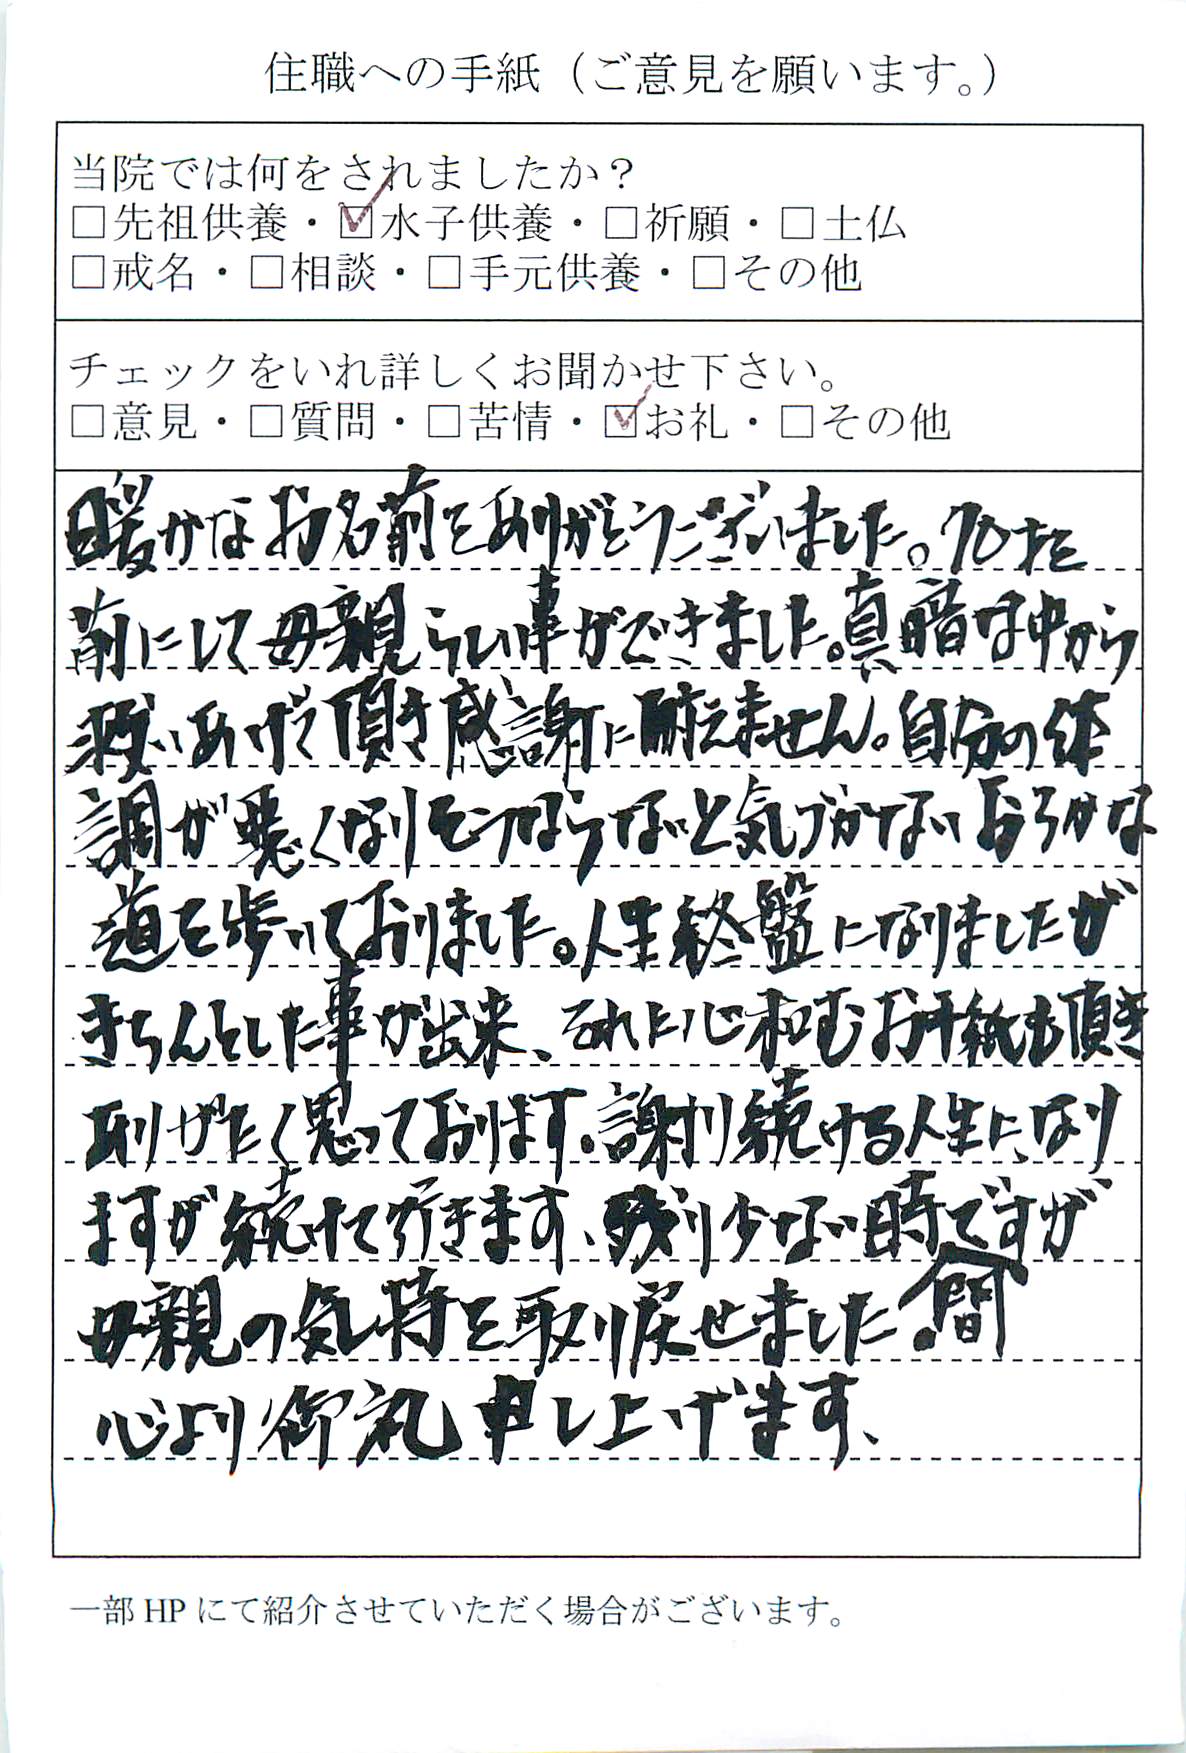 住職への手紙（ご意見を願います。）
当院では何をされましたか？
□先祖供養・☑水子供養・□祈願・□土仏
□戒名・□相談・□手元供養・□その他
チェックをいれ詳しくお聞かせ下さい。
□意見・□質問・□苦情・☑お礼・□その他
暖かなお名前をありがとうございました。70才を
前にして母親らしい事ができました。真暗な中から
救いあげて頂き感謝に耐えません。自分の体
調が悪くなりそうならないと気づかないおろかな
道を歩いておりました。人生終盤になりましたが
きちんとした事が出来、それに心和むお手紙も頂き
ありがたく思っております。謝り続ける人生になり
ますが続けて行きます、残り少ない時ですが
母親の気持を取り戻せました。間
心より御礼申し上げます、
一部HPにて紹介させていただく場合がございます。